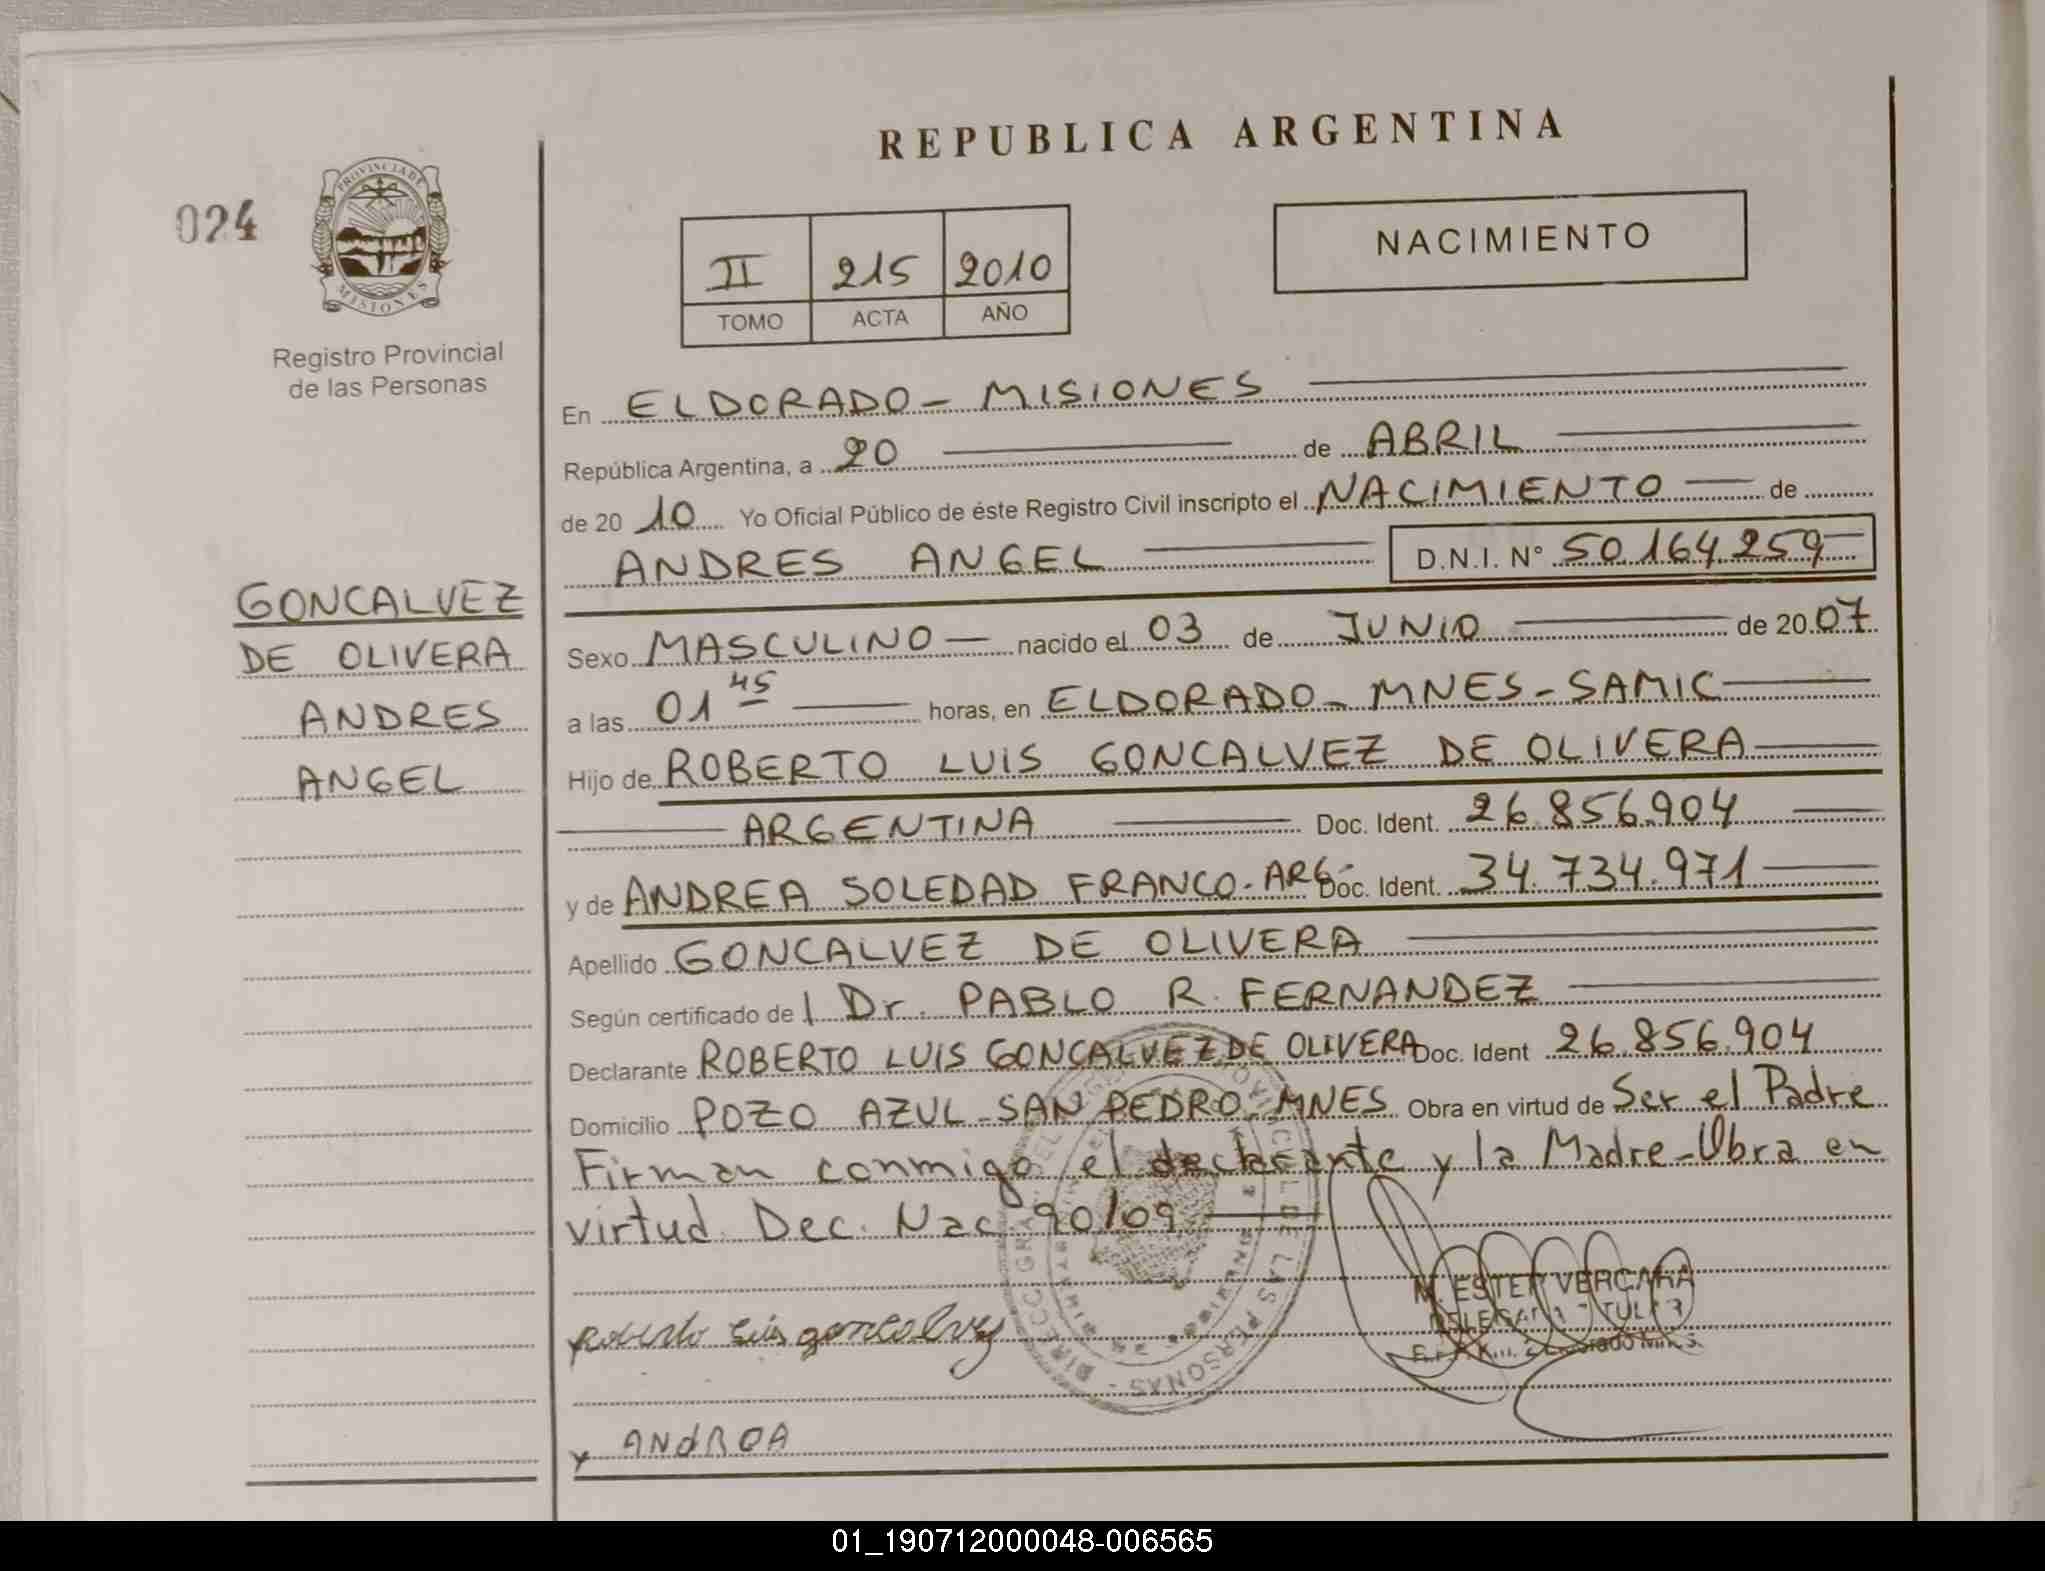 REPUBLICA ARGENTINA
024
PROVINCIA DE
MISIONES
Registro Provincial
de las Personas
II 215 2010
TOMO ACTA AÑO
NACIMIENTO
En ELDORADO - MISIONES
República Argentina, a 20 de ABRIL
de 20 10 Yo Oficial Público de éste Registro Civil inscripto el NACIMIENTO de
ANDRES ANGEL D.N.I. N° 50.164.259
GONCALVEZ
DE OLIVERA
ANDRES
ANGEL
Sexo MASCULINO nacido el 03 de JUNIO de 20 07
a las 01 45 horas, en ELDORADO - MNES - SAMIC
Hijo de ROBERTO LUIS GONCALVEZ DE OLIVERA
ARGENTINA Doc. Ident. 26.856.904
y de ANDREA SOLEDAD FRANCO - ARG. Doc. Ident. 34.734.971
Apellido GONCALVEZ DE OLIVERA
Según certificado de l Dr. PABLO R. FERNANDEZ
Declarante ROBERTO LUIS GONCALVEZ DE OLIVERA Doc. Ident 26.856.904
Domicilio POZO AZUL - SAN PEDRO - MNES Obra en virtud de Ser el Padre
Firman conmigo el declarante y la Madre - Obra en
virtud Dec. Nac 90/09
M. ESTER VERGARA
Roberto Luis goncalvez
DE LAS PERSONAS
ANdROA
01_190712000048-006565